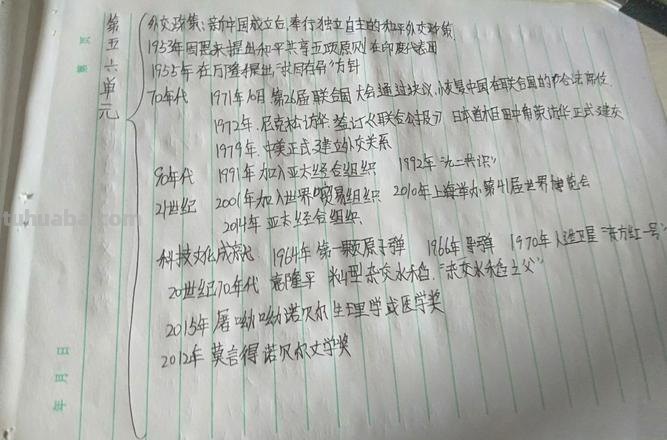 第五六单元
外交政策:新中国成立后,奉行独立自主的和平外交政策
1953年周恩来提出和平共享五项原则 在印度代表团
1955年在万隆提出"求同存异"方针
70年代 1971年10月 第26届联合国大会通过决议,恢复中国在联合国的合法席位
1972年.尼克松访华.签订《联合公报》 日本首相田中角荣访华 正式建交
1979年.中美正式建立外交关系
90年代 1991年加入亚太经合组织 1992年"九二共识"
21世纪 2001年加入世界贸易组织 2010年上海举办第41届世界博览会
2014年亚太经合组织
科技文化成就 1964年第一颗原子弹 1966年导弹 1970年人造卫星"东方红一号"
20世纪70年代 袁隆平 籼型杂交水稻 "杂交水稻之父"
2015年屠呦呦诺贝尔生理学或医学奖
2012年莫言得诺贝尔文学奖
年 月 日
tuhuaba.com